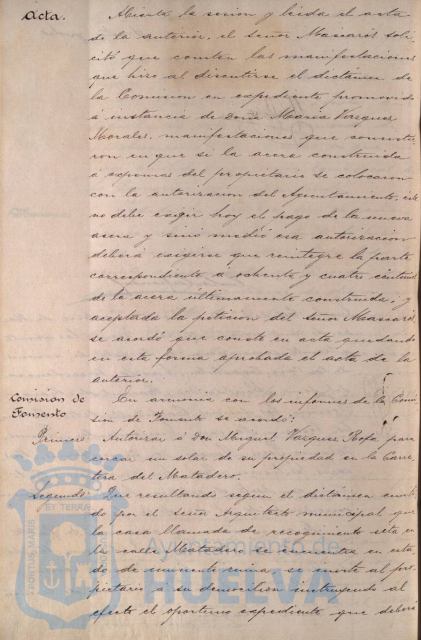 Acta.
Abierta la sesion y leida el acta
de la anterior, el señor Mascarós soli-
citó que consten las manifestaciones
que hizo al discutirse el dictámen de
la Comision en expediente promovido
á instancia de Doña Maria Vazquez
Morales, manifestaciones que consistie-
ron en que si la acera construida
á expensas del propietario se colocaron
con la autorizacion del Ayuntamiento, este
no debe exigir hoy el pago de la nueva
acera y sinó medió esa autorizacion
deberá exigirse que reintegre la parte
correspondiente á ochenta y cuatro centimos
de la acera últimamente construida; y
aceptada la peticion del señor Mascarós
se acordó que conste en acta quedando
en esta forma aprobada el acta de la
anterior.
Comision de
Fomento
En armonia con los informes de la Comi-
sion de Fomento se acordó:
Primero Autorizar á Don Miguel Vazquez para
cercar un solar de su propiedad en la Carre-
tera del Matadero.
Segundo Que resultando segun el dictámen emiti-
do por el señor Arquitecto municipal que
la casa llamada de recogimiento sita en
la calle Matadero se encuentra en esta-
do de inminente ruina se invite al pro-
pietario á su demolicion instruyendo al
efecto el oportuno expediente que deberá
PORTUS MARIS ET TERRAE
Ayuntamiento de
HUELVA